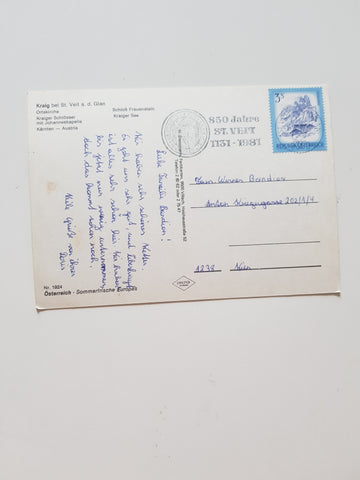 Kraig bei St. Veit a. d. Glan
Ortskirche
Kraiger Schlösser
mit Johanneskapelle
Kärnten — Austria
Schloß Frauenstein
Kraiger See
850 Jahre
ST. VEIT
1131-1981
3 S
REPUBLIK ÖSTERREICH
Liebe Familie Bandion!
Wir haben sehr schönes Wetter.
Es geht uns sehr gut, und
ist alles sehr schön hier. Wir haben
bis jetzt nur wenig unternommen,
doch das kommt schon noch.
Viele Grüße von ihrer
Doris
Fam. Werner Bandion
1238 Wien
Nr. 1924
Österreich - Sommerfrische Europas